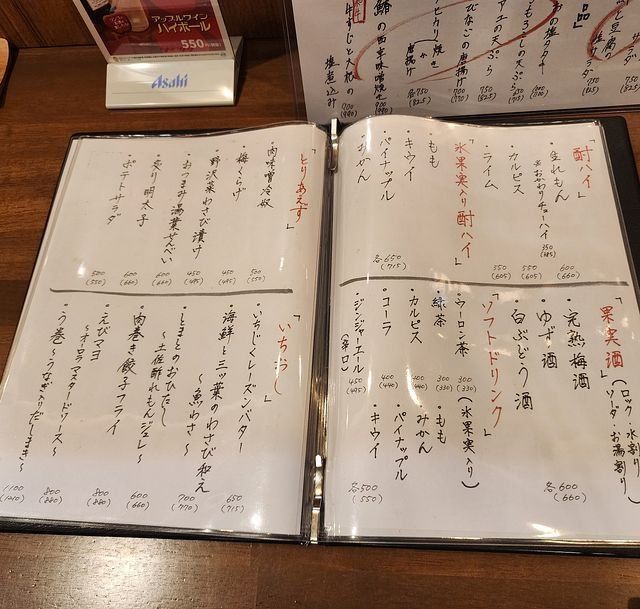 アップルワイン
ハイボール
550
Asahi
の塩タタキ
もろこしの天ぷら
アユの天ぷら
唐揚げ
塩煮込み
「酎ハイ」
・生れもん
※おかわりチューハイ 350(385)
600(660)
・カルピス 550(605)
・ライム 550(605)
「氷果実入り酎ハイ」
・もも
・キウイ
・パイナップル
・みかん
各650(715)
「果実酒」
(ロック 水割り
ソーダ・お湯割り)
・完熟梅酒
・ゆず酒
・白ぶどう酒
各600(660)
「ソフトドリンク」
・ウーロン茶 300(330)
・緑茶 300(330)
・カルピス 400(440)
・コーラ 400(440)
・ジンジャーエール(辛口) 450(495)
(氷果実入り)
・もも
・みかん
・パイナップル
・キウイ
各500(550)
「とりあえず」
・肉味噌冷奴 500(550)
・梅くらげ 450(495)
・野沢菜わさび漬け 450(495)
・おつまみ湯葉せんべい 600(660)
・炙り明太子 600(660)
・ポテトサラダ 500(550)
「いちおし」
・いちじくレーズンバター 650(715)
・海鮮と三ッ葉のわさび和え
〜魚わさ〜 700(770)
・とまとのおひたし
〜土佐酢れもんジュレ〜 600(660)
・肉巻き餃子フライ 800(880)
・えびマヨ
〜オーロラマスタードソース〜 800(880)
・う巻〜うなぎ入りだしまき〜 1100(1210)